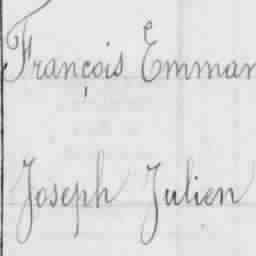 François Emman
Joseph Julien